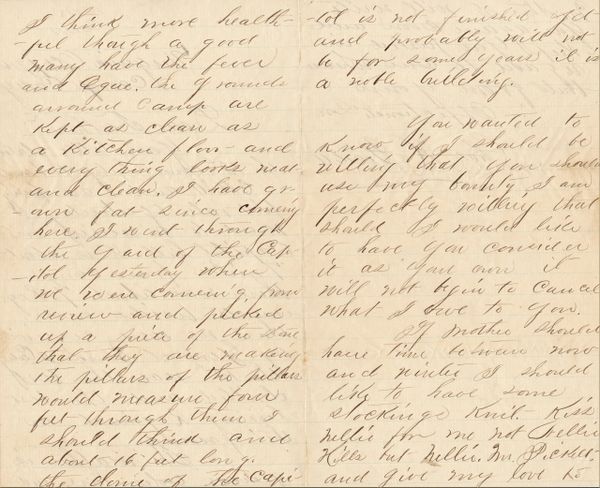 I think more health-
-ful though a good
many have the fever
and Ague. the grounds
arround Camp are
kept as clean as
a Kitchen floor and
every thing looks neat
and clean. I have gr-
-own fat since coming
here. I went through
the Yard of the Cap-
-itol Yesterday when
we were comeing from
review and picked
up a piece of the stone
that they are making
the pillars of the pillars
would measure four
feet through them I
should think and
about 16 feet long.
the dome of the Capi-
-tol is not finished yet
and probably will not
be for some years it is
a noble building.
You wanted to
Know if I should be
willing that you should
use my bounty I am
perfectly willing that
should I would like
to have you consider
it as your own it
will not begin to cancel
what I owe to you.
If Mother should
have time between now
and winter I should
like to have some
stockings Knit Kiss
Nellie for me not Nellie
Hills but Nellie. M. Pickett
and give my love to